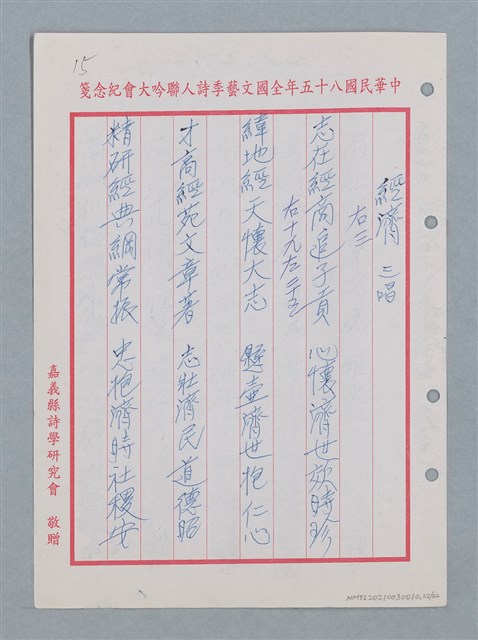 15
中華民國八十五年全國文藝季詩人聯吟大會紀念箋
經濟 三唱
右三
志在經商追子貢 心懷濟世效時珍
右十九左二五
緯地經天懷大志 懸壺濟世抱仁心
才高經苑文章著 志壯濟民道德昭
精研經典綱常振 忠抱濟時社稷安
嘉義縣詩學研究會 敬贈